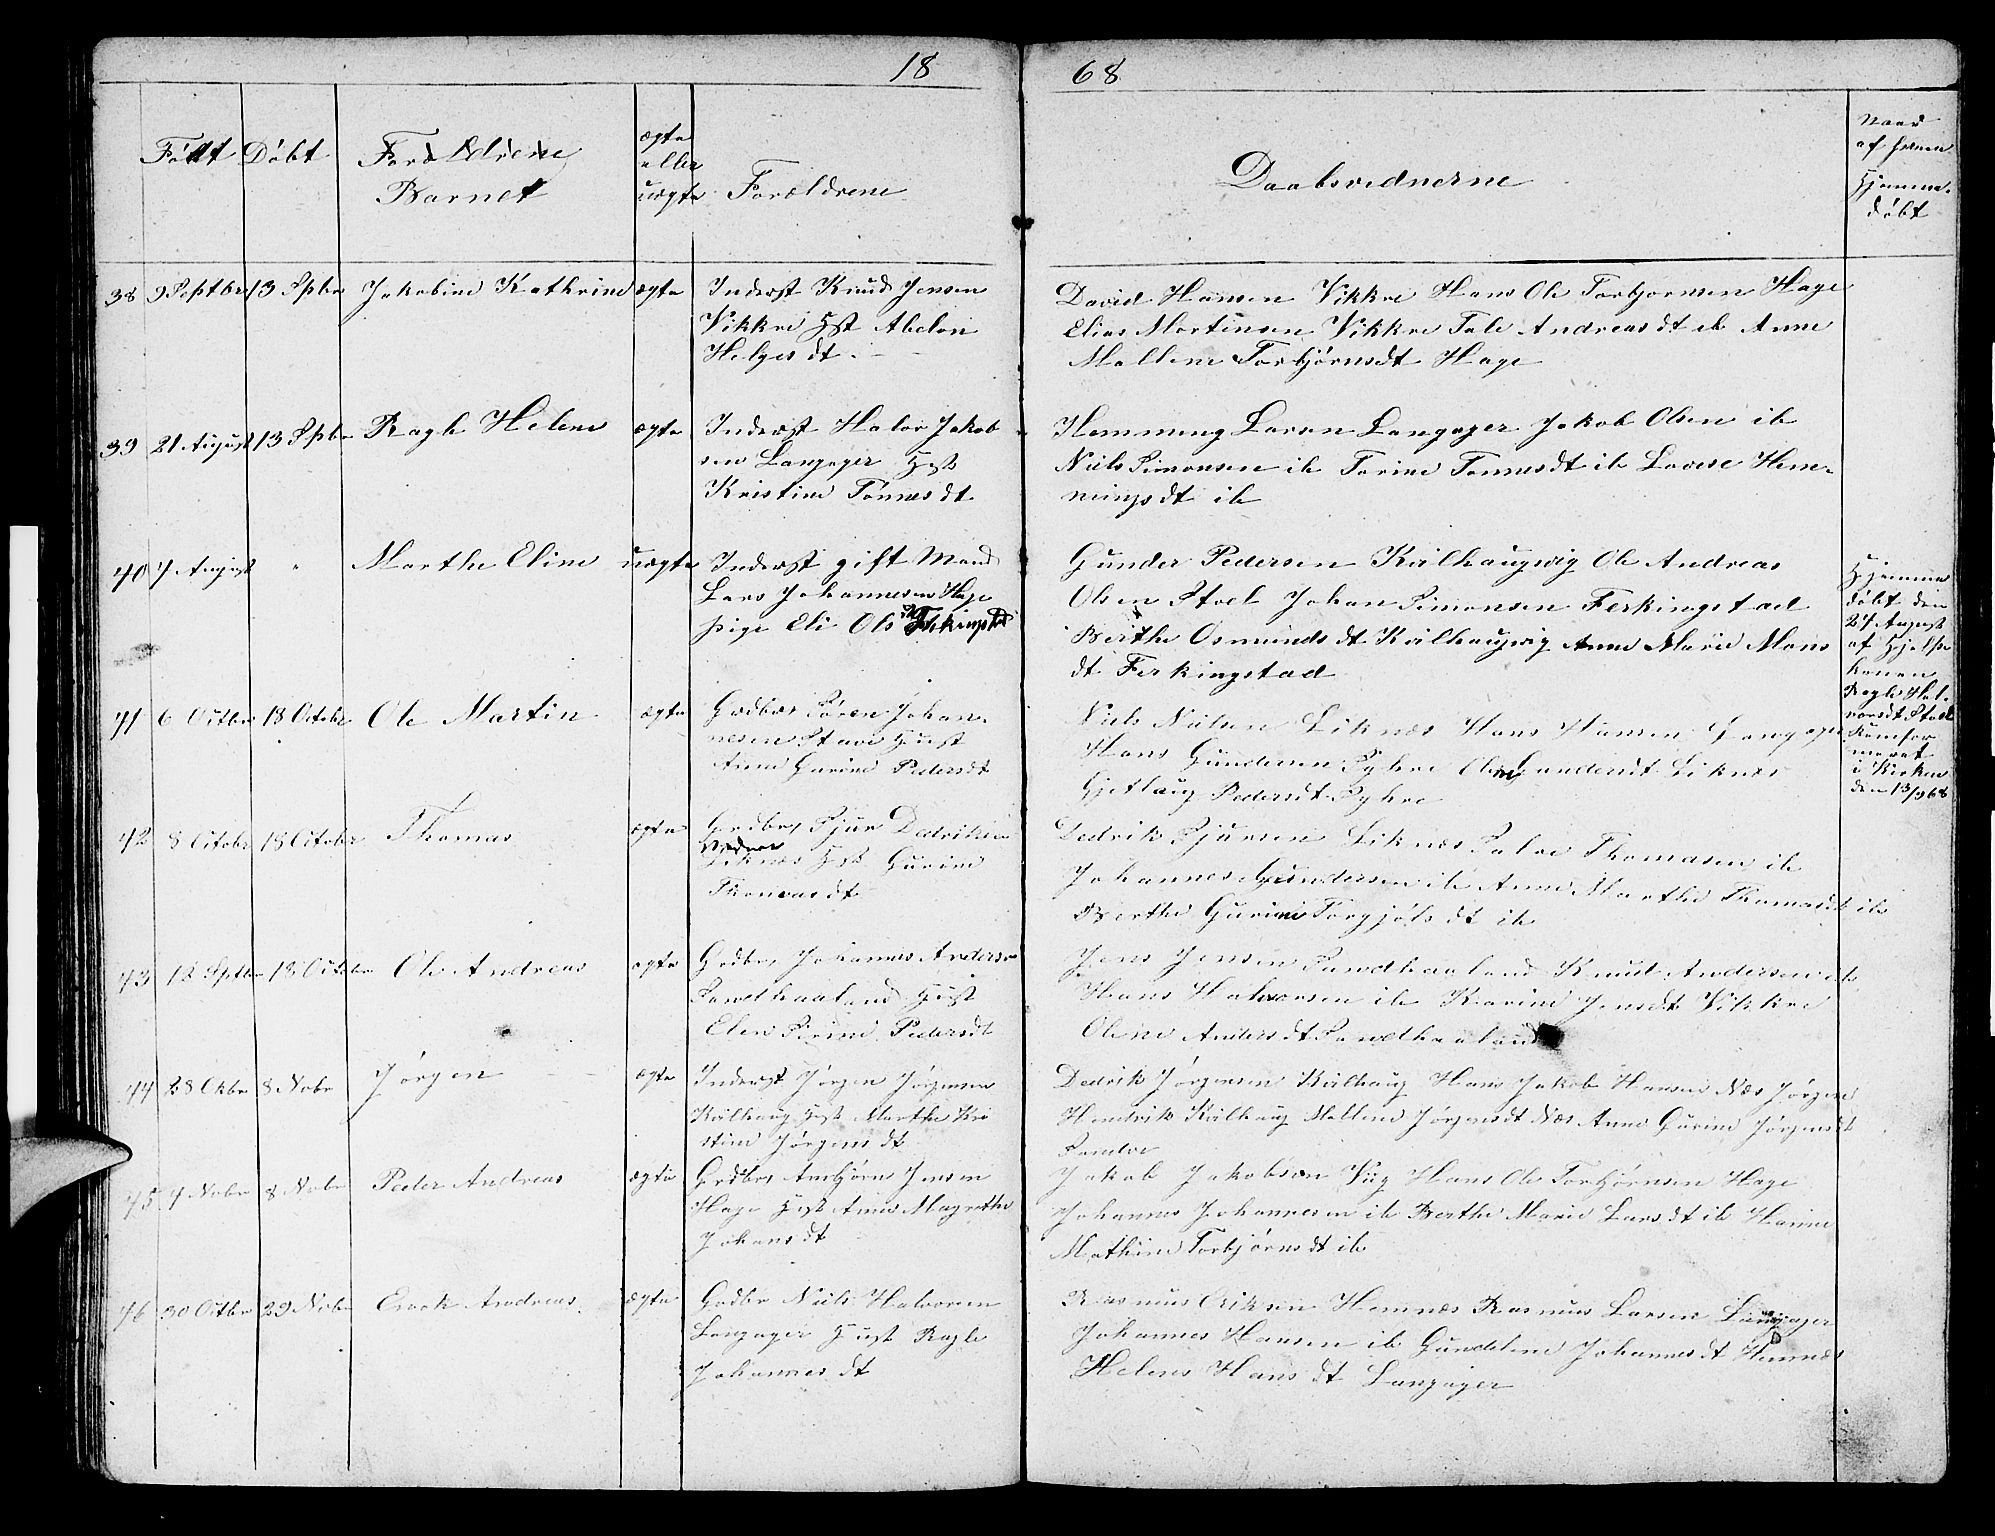 18 68
Født Døbt Forældrene Barnet ægte eller uægte Forældrene Daabsvidnerne Naar af hvem Hjemmedøbt
38 9 Septbr 13 Spbr Jakobine Kathrine ægte Inderst Knud Jensen
Vikkre Hst Abelon
Helges dt.
David Hansen Vikkre Hans Ole Torbjørnsen Hage
Elias Martinsen Vikkre Tale Andreasdt ib Anne
Mallene Torbjørnsdt Hage
39 21 August 13 Spbr Ragle Helene ægte Inderst Halvor Jakob
sen Langager Hst
Kristine Tønnes dt
Hemming Larsen Langager Jakob Olsen ib
Niels Simonsen ib Torine Tønnesdt ib Lovise Hem-
mings dt ib
40 7 August " Marthe Eline uægte Inderst gift Mand
Lars Johannesen Hage
pige Eli Ols dt Ferkingstad
Gunder Pedersen Kvilhaugsvig Ole Andreas
Olsen Stol Johan Simonsen Ferkingstad
Berthe Osmunds dt Kvilhaugsvig Anne Marie Mons
dt Ferkingstad
Hjemme
døbt den
27 August
af Hjelpe
konen
Ragle Hal-
vorsdt Stol
Konfor
meret
i Kirken
den 13/9 68
41 6 Octbr 18 Octobr Ole Martin ægte Gaardbr Søren Johan-
nesen Stave Hust
Anne Gurine Pedersdt
Niels Nilsen Liknes Hans Hansen Langager
Hans Gundersen Syhre Gundersdt Liknes
Gjetlaug Pedersdt Syhre
42 8 Octobr 18 Octobr Thomas ægte Grdbr Sjur Dedriksen
Liknes Hst Gurine
Thomas dt
Dedrik Sjursen Liknes Salve Thomasen ib
Johannes Gundersen ib Anne Marthe Thomasdt ib
Berthe Gurine Torgjøls dt ib
43 12 Sptbr 18 Octobr Ole Andreas ægte Grdbr Johannes Andersen
Sandhaaland Hust
Elen Serine Pedersdt
Jens Jensen Sandhaaland Knud Andersen ib
Hans Halvorsen ib Karine Jensdt Vikkre
Olene Anders dt Sandhaaland
44 28 Okbr 8 Nobr Jørgen ægte Inderst Jørgen Jørgensen
Kvilhaug Hst Marthe Kri
stine Jørgens dt
Dedrik Jørgensen Kvilhaug Hans Jakob Hansen Næs Jørgen
Hendrik Kvilhaug Mallene Jørgensdt Næs Anne Gurine Jørgensdt
Sandve
45 4 Nobr 8 Nobr Peder Andreas ægte Grdbr Ambjørn Jensen
Hage Hst Anne Magrethe
Johans dt
Jakob Jakobsen Viig Hans Ole Torbjørnsen Hage
Johannes Johannesen ib Berthe Marie Larsdt ib Hanne
Mathine Torbjørns dt ib
46 30 Octbr 29 Nobr Enok Andreas ægte Grdbr Niels Halvorsen
Langager Hust Ragle
Johannes dt
Rasmus Eriksen Hemnes Rasmus Larsen Langager
Johannes Hansen ib Gundeline Johannes dt Hemnes
Helene Hans dt Langager